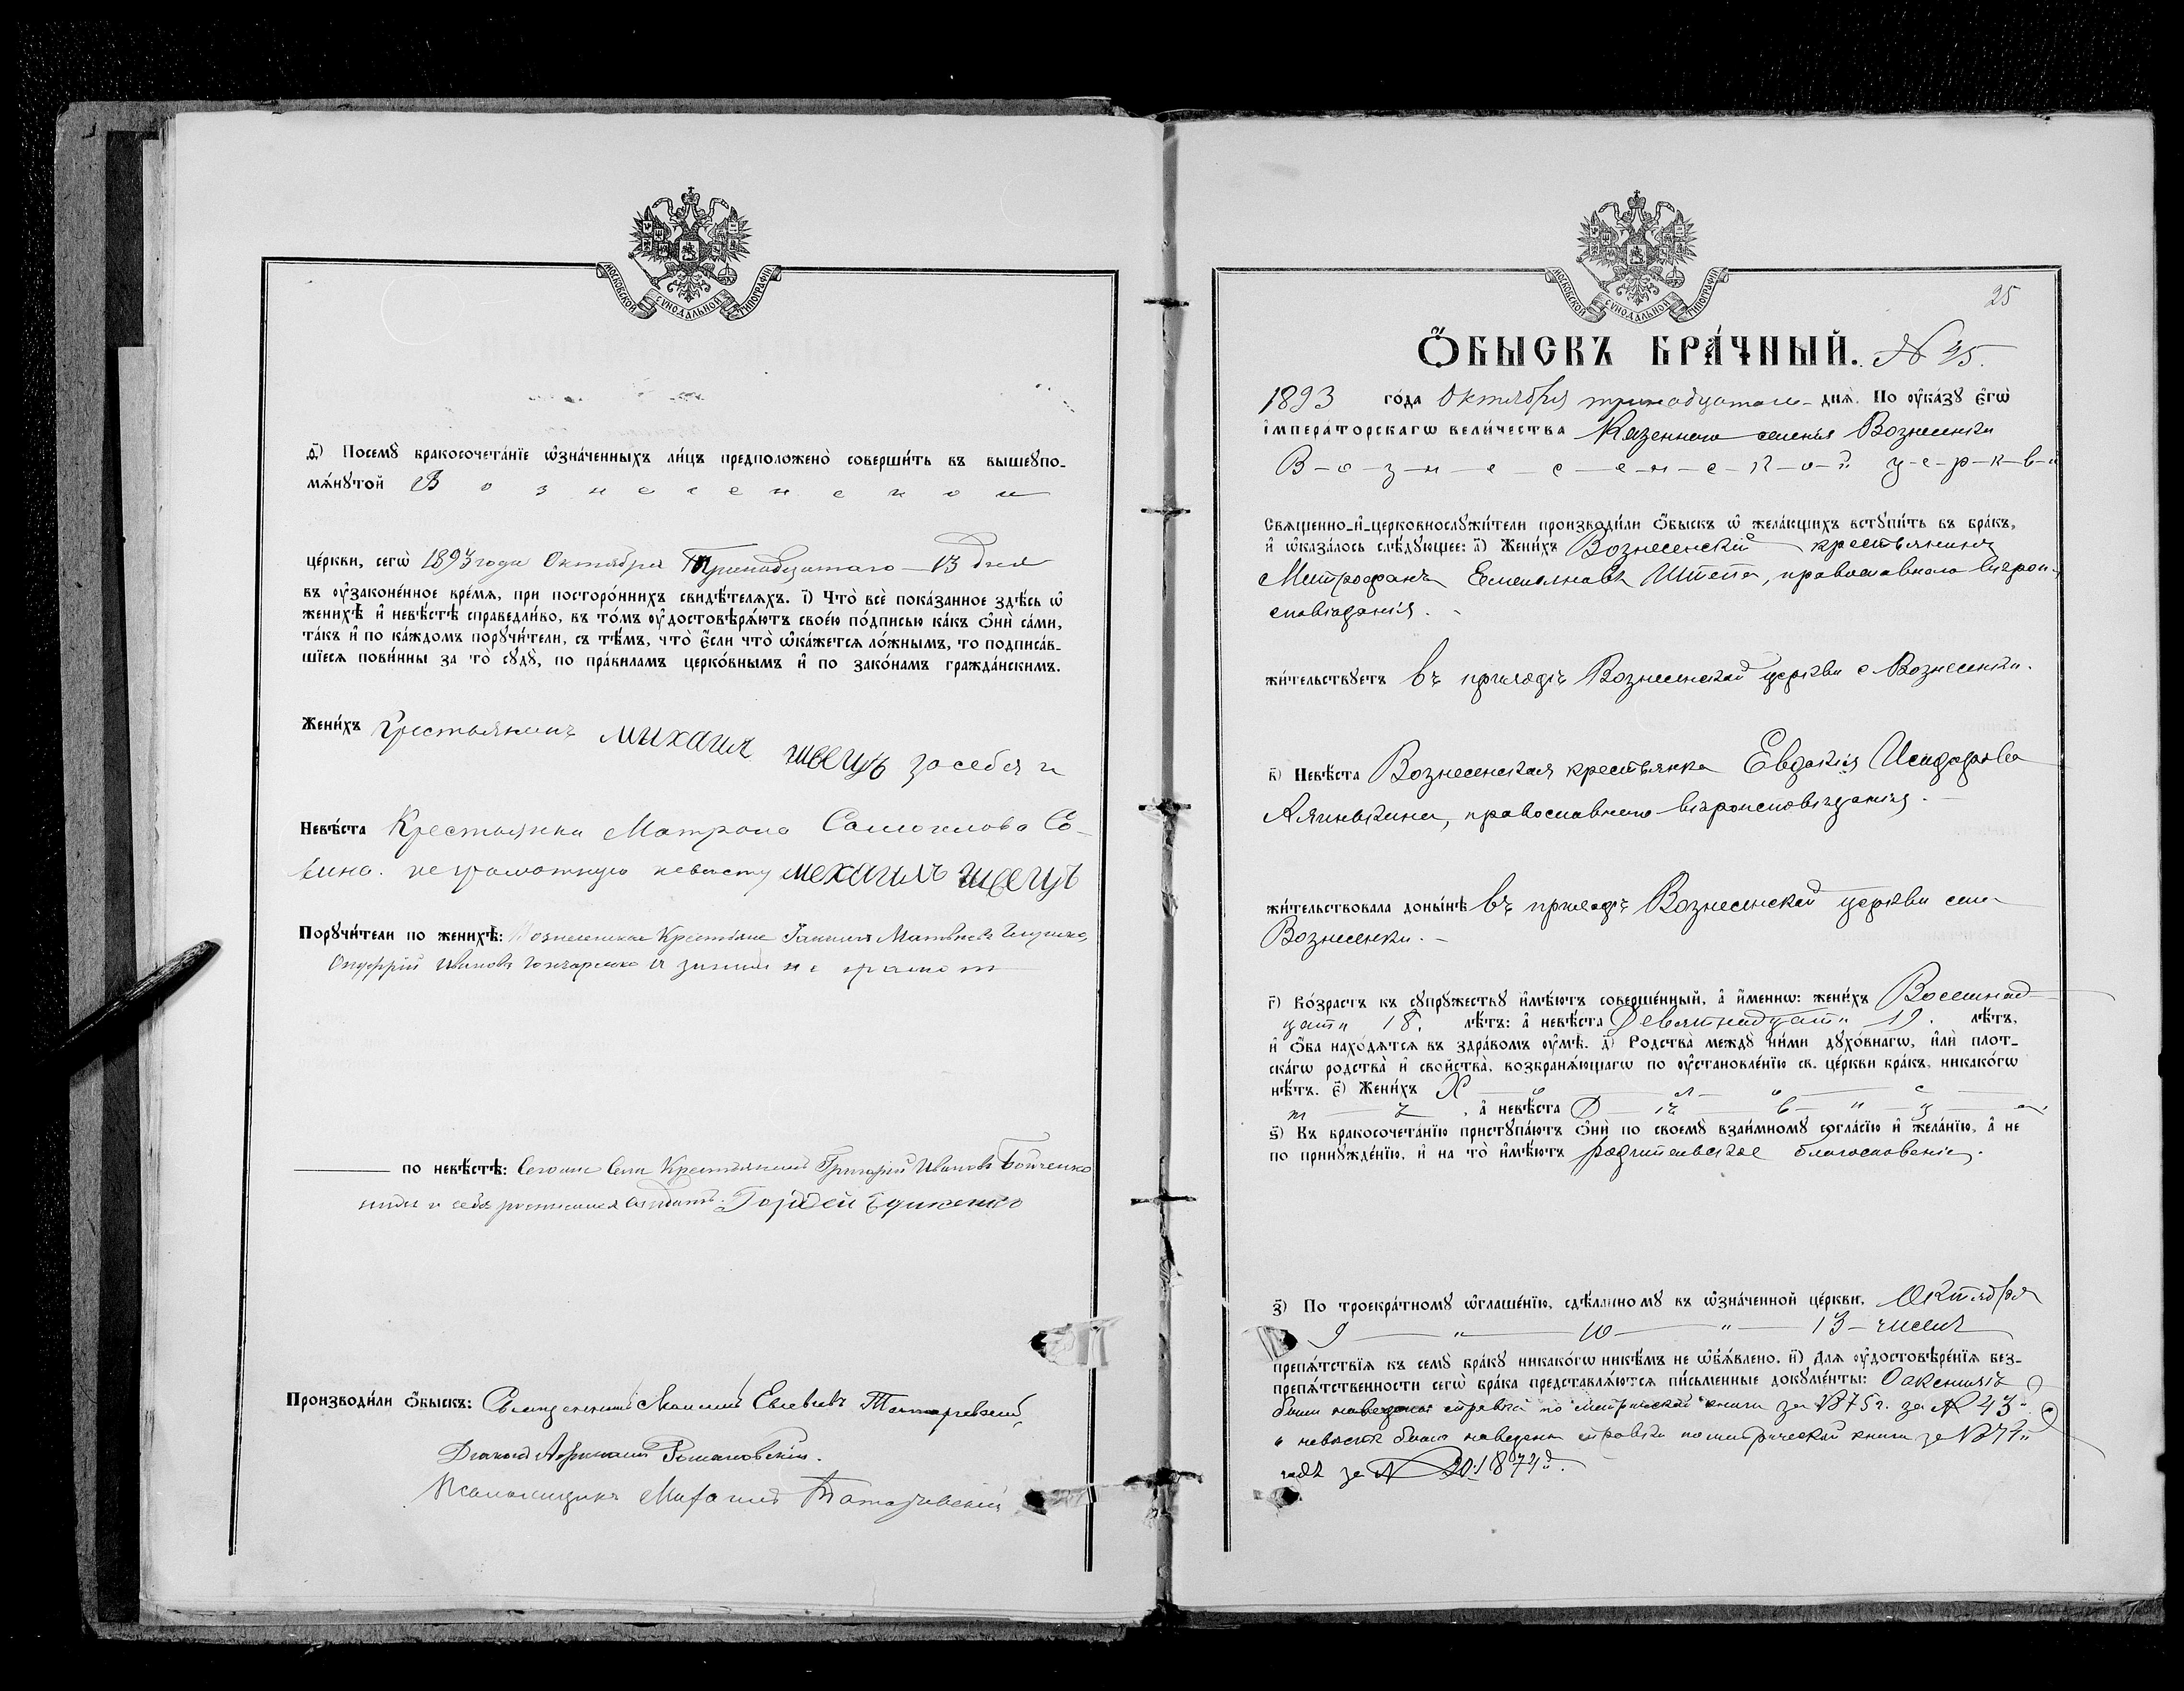 МОСКОВСКОЙ СѴНОДАЛЬНОЙ ТИПОГРАФІИ
ѳ҃) Посемꙋ̀ бракосочета́нїе ѡ҆зна́ченныхъ ли́цъ предположено̀ соверши́ть въ вышеꙋпо-
мѧ́нꙋтой Вознесенской
це́ркви, сегѡ̀ 1893 года Октября Тринадцатаго 13 дня
въ ᲂу҆зако́ненное вре́мѧ, при посторо́ннихъ свидѣ́телѧхъ. і҃) Что̀ всѐ пока́занное здѣ́сь ѡ҆
женихѣ̀ и҆ невѣ́стѣ справедли́во, въ то́мъ ᲂу҆достовѣрѧ́ютъ свое́ю по́дписью ка́къ ѻ҆нѝ са́ми,
та́къ и҆ по ка́ждомъ порꙋчи́тели, съ тѣ́мъ, что̀ є҆́сли что̀ ѡ҆ка́жетсѧ ло́жнымъ, то подписа́в-
шїесѧ пови́нны за то̀ сꙋдꙋ̀, по пра́виламъ церко́внымъ и҆ по зако́намъ гражда́нскимъ.
Жени́хъ Крестьянинъ михаил швецъ за себя и
Невѣ́ста Крестьянка Матрона Самоилова Со-
неграмотную невесту мехаилъ швецъ
Порꙋчи́тели по женихѣ̀: Вознесенскіе Крестьяне Матвѣевъ
Онуфрій Ивановъ Гончаренко не грамот
по невѣ́стѣ: Крестьянинъ Григорій Ивановъ Бойченко
и себя росписался Гордей
Производи́ли ѻ҆́быскъ: Священникъ
Діаконъ Романовскій.
Псаломщикъ
МОСКОВСКОЙ СѴНОДАЛЬНОЙ ТИПОГРАФІИ
25
Ѻ҆́БЫСКЪ БРА́ЧНЫЙ. № 25.
1893 го́да Октября тринадцатаго днѧ̀. По ᲂу҆ка́зꙋ є҆гѡ̀
і҆мпера́торскагѡ вели́чества Казеннаго селенія Вознесенки
В-о-з-н-е-с-е-н-с-к-о-й ц-е-р-к-в-и
Свѧще́нно-и҆-церковнослꙋжи́тели производи́ли ѻ҆́быскъ ѡ҆ жела́ющихъ встꙋпи́ть въ бра́къ,
и҆ ѡ҆каза́лось слѣ́дꙋющее: а҃) Жени́хъ Вознесенскій крестьянинъ
Митрофанъ Емельяновъ Штепа, православнаго вѣрои-
сповѣданія.
жи́тельствꙋетъ въ приходѣ Вознесенской церкви с Вознесенки.
в҃) Невѣ́ста Вознесенская крестьянка Евдокія Исидорова
православнаго вѣроисповѣданія.
жи́тельствовала доны́нѣ въ приходѣ Вознесенской церкви села
Вознесенки.
г҃) Во́зрастъ къ сꙋпрꙋ́жествꙋ и҆мѣ́ютъ соверше́нный, а҆ и҆́меннѡ: жени́хъ Восемнад-
цати 18. лѣ́тъ: а҆ невѣ́ста Девятнадцати 19. лѣ́тъ,
и҆ ѻ҆́ба нахо́дѧтсѧ въ здра́вомъ ᲂу҆мѣ̀. д҃) Родства̀ междꙋ̀ ни́ми дꙋхо́внагѡ, и҆лѝ плот-
ска́гѡ родства̀ и҆ сво́йства, возбранѧ́ющагѡ по ᲂу҆становле́нїю св. це́ркви бра́къ, никако́гѡ
нѣ́тъ. є҃) Жени́хъ Х о л о с
т ъ, а҆ невѣ́ста Д ѣ в и ц а.
ѕ҃) Къ бракосочета́нїю пристꙋпа́ютъ ѻ҆нѝ по своемꙋ̀ взаи́мномꙋ согла́сїю и҆ жела́нїю, а҆ не
по принꙋжде́нїю, и҆ на то̀ и҆мѣ́ютъ родительское благословеніе.
з҃) По троекра́тномꙋ ѡ҆глаше́нїю, сдѣ́ланномꙋ въ ѡ҆зна́ченной це́ркви, Октября
9 " 10 " 13 числа
препѧ́тствїѧ къ семꙋ̀ бра́кꙋ никако́гѡ никѣ́мъ не ѡ҆бъѧ́влено. и҃) Длѧ ᲂу҆достовѣре́нїѧ без-
препѧ́тственности сегѡ̀ бра́ка представлѧ́ютсѧ пи́сьменные докꙋме́нты: О женихѣ
была наведена справка по метрической книги за 1875 г. за № 43
о невѣстѣ была наведена справка по метрической книги за 1874
годъ за № 20. 1874